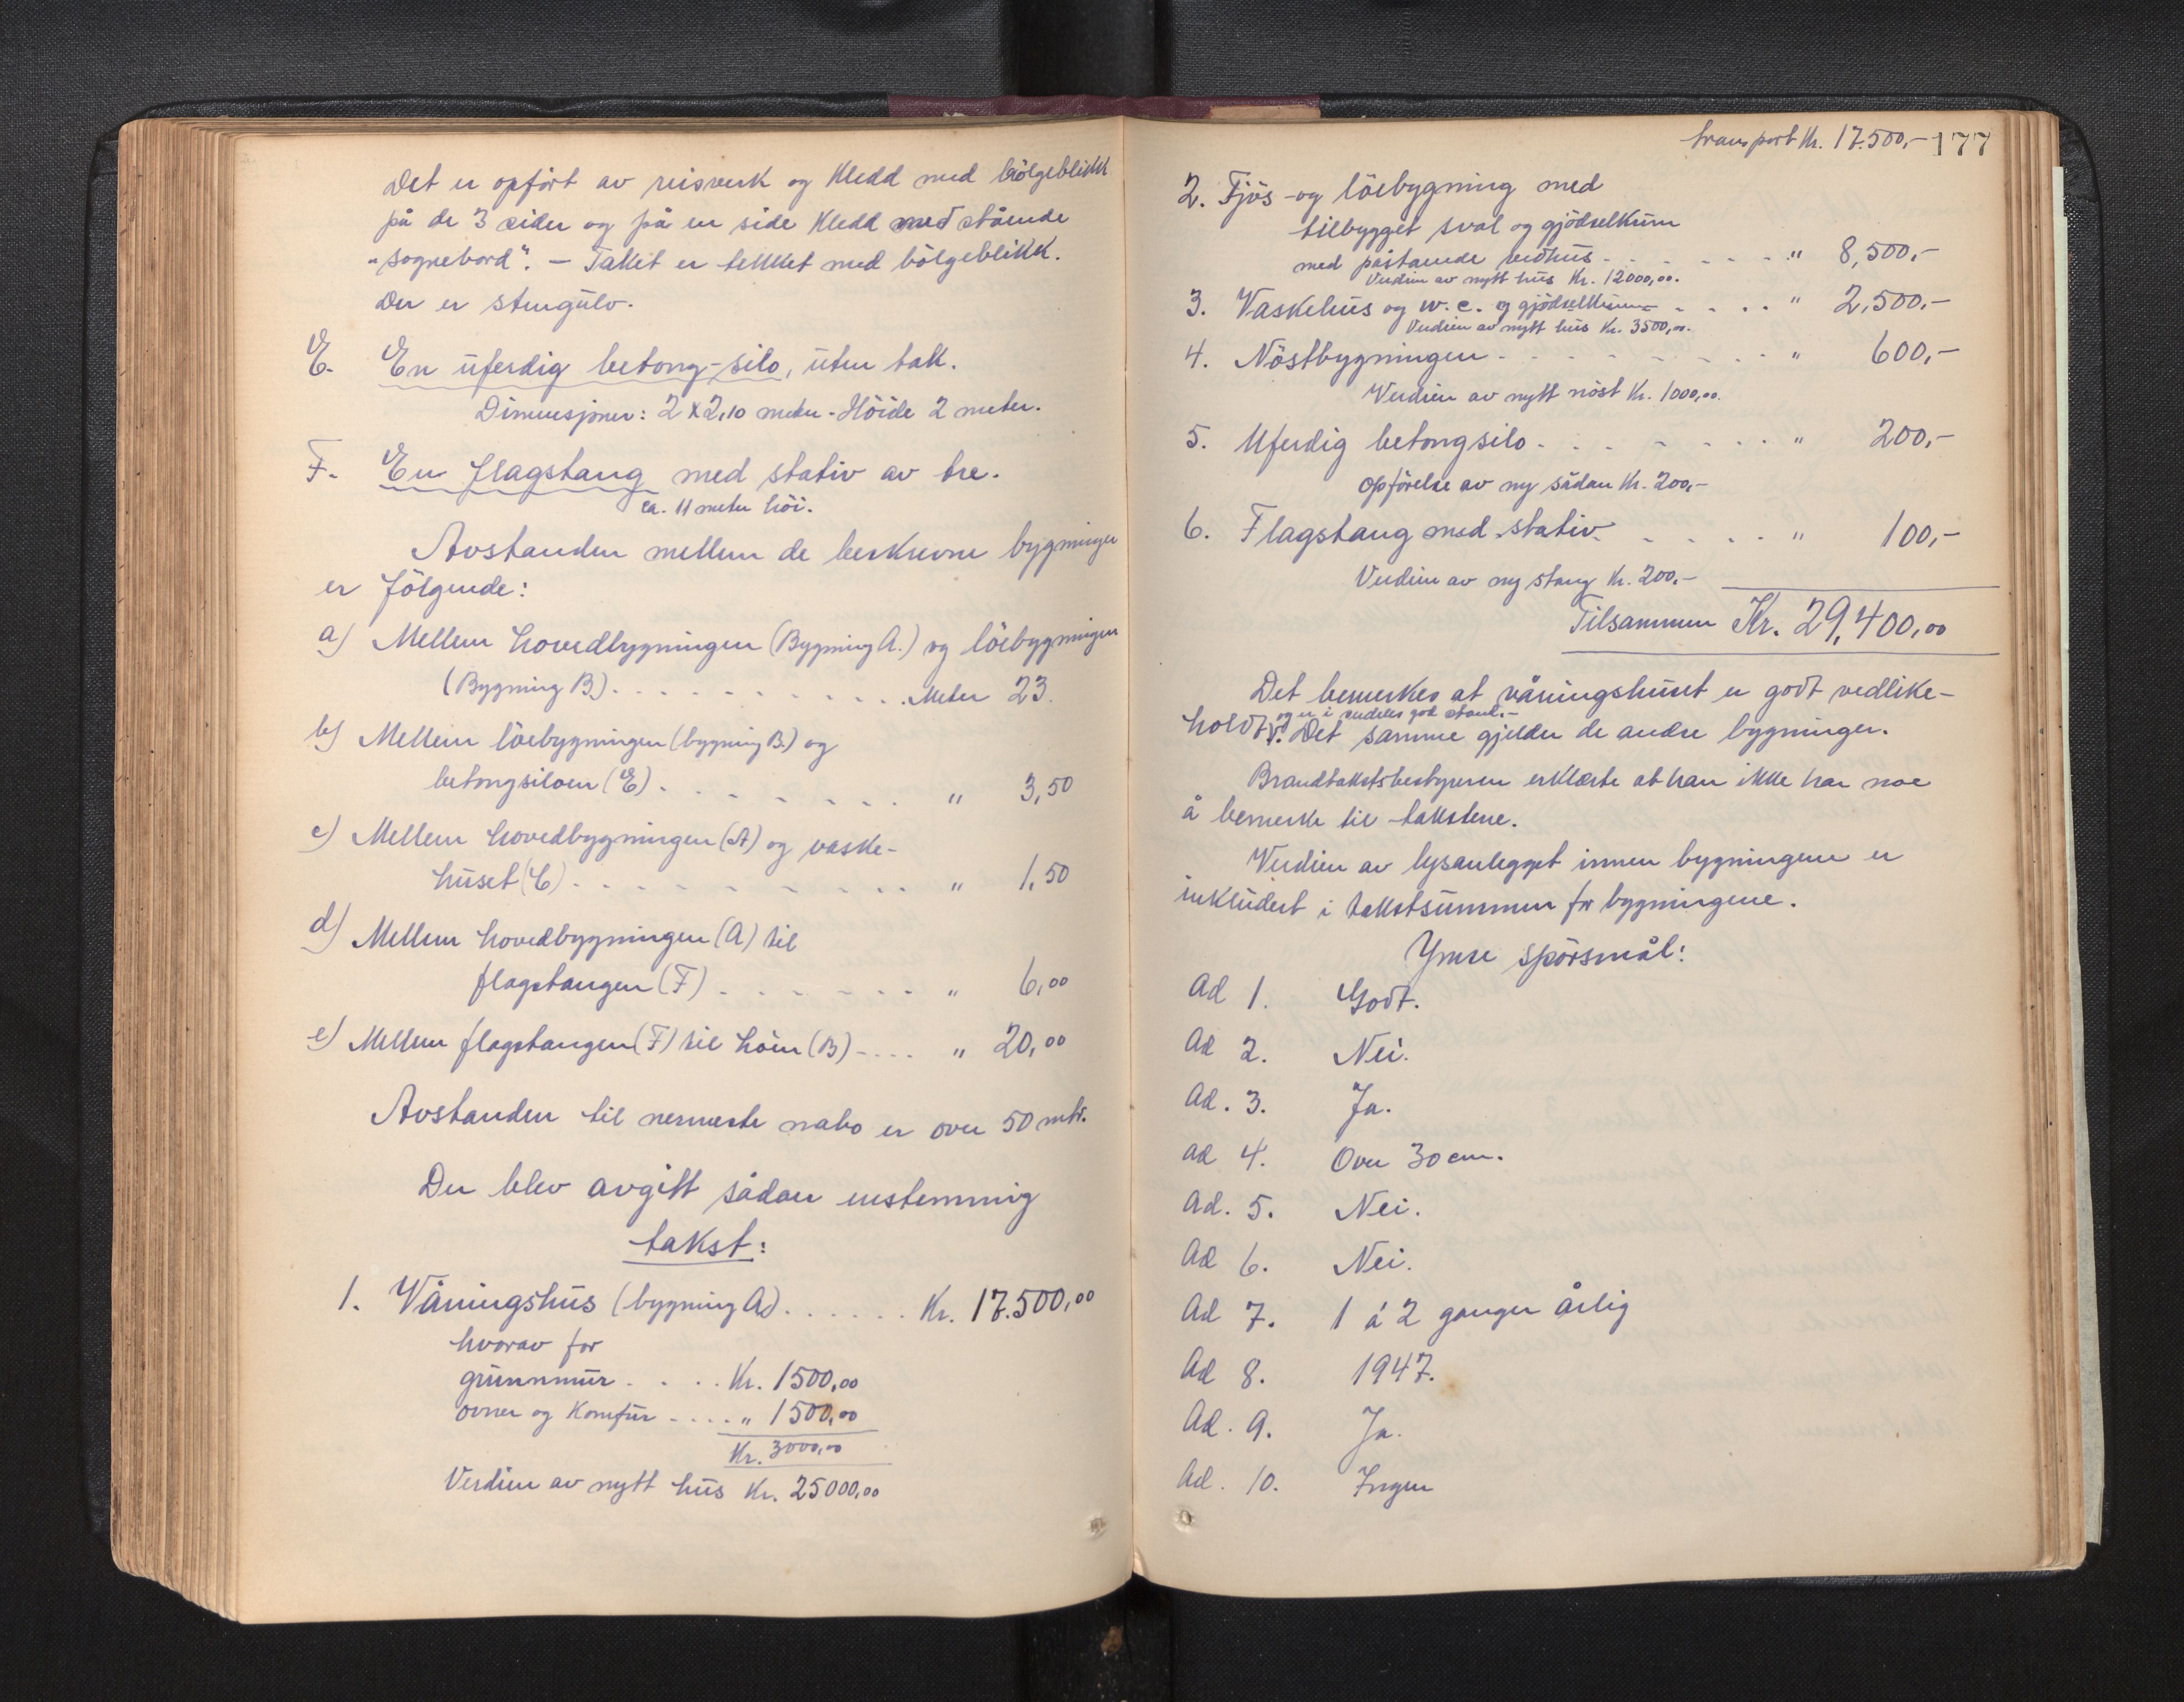 Det er opført av reisverk og kledd med bölgeblikk
på de 3 sider og på en side kledd med stående
"sognebord". — Taket er tekket med bölgeblikk.
Der er stengulv.
E. En uferdig betong-silo, uten tak.
Dimensjoner: 2 x 2,10 meter - Höide 2 meter.
F. En flagstang med stativ av tre.
ca. 11 meter höi.
Avstanden mellem de beskrevne bygninger
er fölgende:
a) Mellem hovedbygningen (Bygning A.) og löebygningen
(Bygning B.) . . . . . . . . . . . Meter 23.
b) Mellem löebygningen (bygning B.) og
betongsiloen (E) . - - - - - - - " 3,50
c) Mellem hovedbygningen (A) og vaske-
huset (C) . - - - - - - - - - " 1,50
d) Mellem hovedbygningen (A) til
flagstangen (F) . - - - - - - - " 6,00
e) Mellem flagstangen (F) til löen (B) - . . . " 20,00
Avstanden til nermeste nabo er over 50 mtr.
Der blev avgitt sådan enstemmig
takst:
1. Våningshus (bygning A) . . . . . . Kr. 17.500,00
hvorav for
grunnmur . . . . Kr. 1500,00
ovner og komfur - . . . " 1500,00
Kr. 3000,00
Verdien av nytt hus Kr. 25000,00
transport Kr. 17.500,- 177
2. Fjös -og löebygning med
tilbygget sval og gjödselkum
med påstående vedhus . - - - - - - " 8,500,-
Verdien av nytt hus Kr. 12000,00.
3. Vaskehus og w.c. og gjödselkum - - . . . " 2,500,-
Verdien av nytt hus Kr. 3500,00.
4. Nöstbygningen . - - - - - - - - " 600,-
Verdien av nytt nöst Kr. 1000,00.
5. Uferdig betongsilo - . . - - - . . " 200,-
Opförelse av ny sådan Kr. 200,-
6. Flagstang med stativ . - - - - . " 100,-
Verdien av ny stang Kr. 200,-
Tilsammen Kr. 29,400,00
Det bemerkes at våningshuset er godt vedlike-
og er i særdeles god stand.-
holdt. Det samme gjelder de andre bygninger.
Brandtakstsbestyreren erklærte at han ikke har noe
å bemerke til takstene.
Verdien av lysanlegget innen bygningene er
inkludert i takstsummen for bygningene.
Ymse spörsmål:
Ad 1. Godt.
Ad 2. Nei.
Ad. 3. Ja.
Ad 4. Over 30 cm.
Ad. 5. Nei.
Ad 6. Nei.
Ad 7. 1 á 2 ganger årlig
Ad 8. 1947.
Ad. 9. Ja.
Ad. 10. Ingen